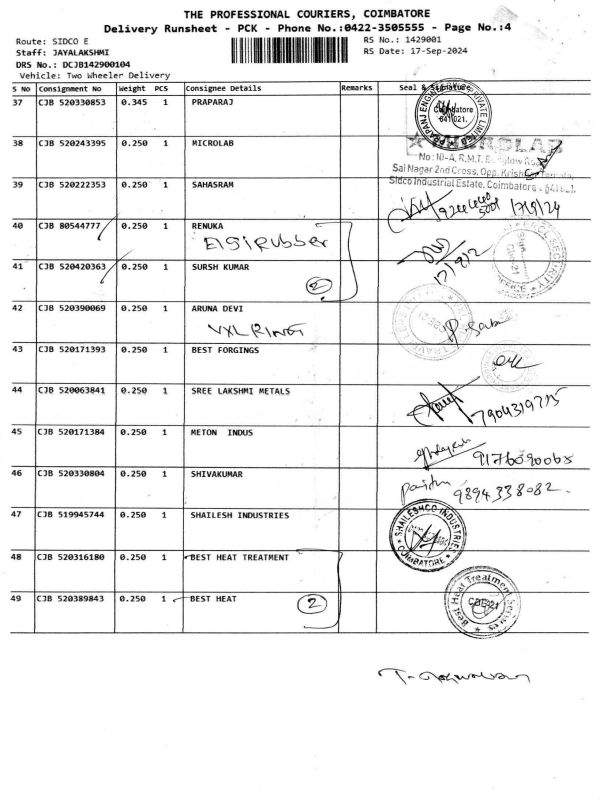 THE PROFESSIONAL COURIERS, COIMBATORE
Delivery Runsheet - PCK - Phone No.:0422-3505555 - Page No.:4
Route: SIDCO E
RS No.: 1429001
Staff: JAYALAKSHMI
RS Date: 17-Sep-2024
DRS No.: DCJB142900104
Vehicle: Two Wheeler Delivery
S No Consignment No Weight PCS Consignee Details Remarks Seal & Signature
37 CJB 520330853 0.345 1 PRAPARAJ
Coimbatore
641 021.
38 CJB 520243395 0.250 1 MICROLAB
Sai Nagar 2nd Cross, Opp.
Sidco Industrial Estate, Coimbatore
39 CJB 520222353 0.250 1 SAHASRAM
17/9/24
40 CJB 80544777 0.250 1 RENUKA
Elgi Rubber
41 CJB 520420363 0.250 1 SURSH KUMAR
2
17/9/2
42 CJB 520390069 0.250 1 ARUNA DEVI
VXL RING
43 CJB 520171393 0.250 1 BEST FORGINGS
44 CJB 520063841 0.250 1 SREE LAKSHMI METALS
45 CJB 520171384 0.250 1 METON INDUS
46 CJB 520330804 0.250 1 SHIVAKUMAR
9894338082.
47 CJB 519945744 0.250 1 SHAILESH INDUSTRIES
SHAILESHCO INDUSTRIES
COIMBATORE
48 CJB 520316180 0.250 1 BEST HEAT TREATMENT
49 CJB 520389843 0.250 1 BEST HEAT
2
Best Heat Treatment Services
CBE-21